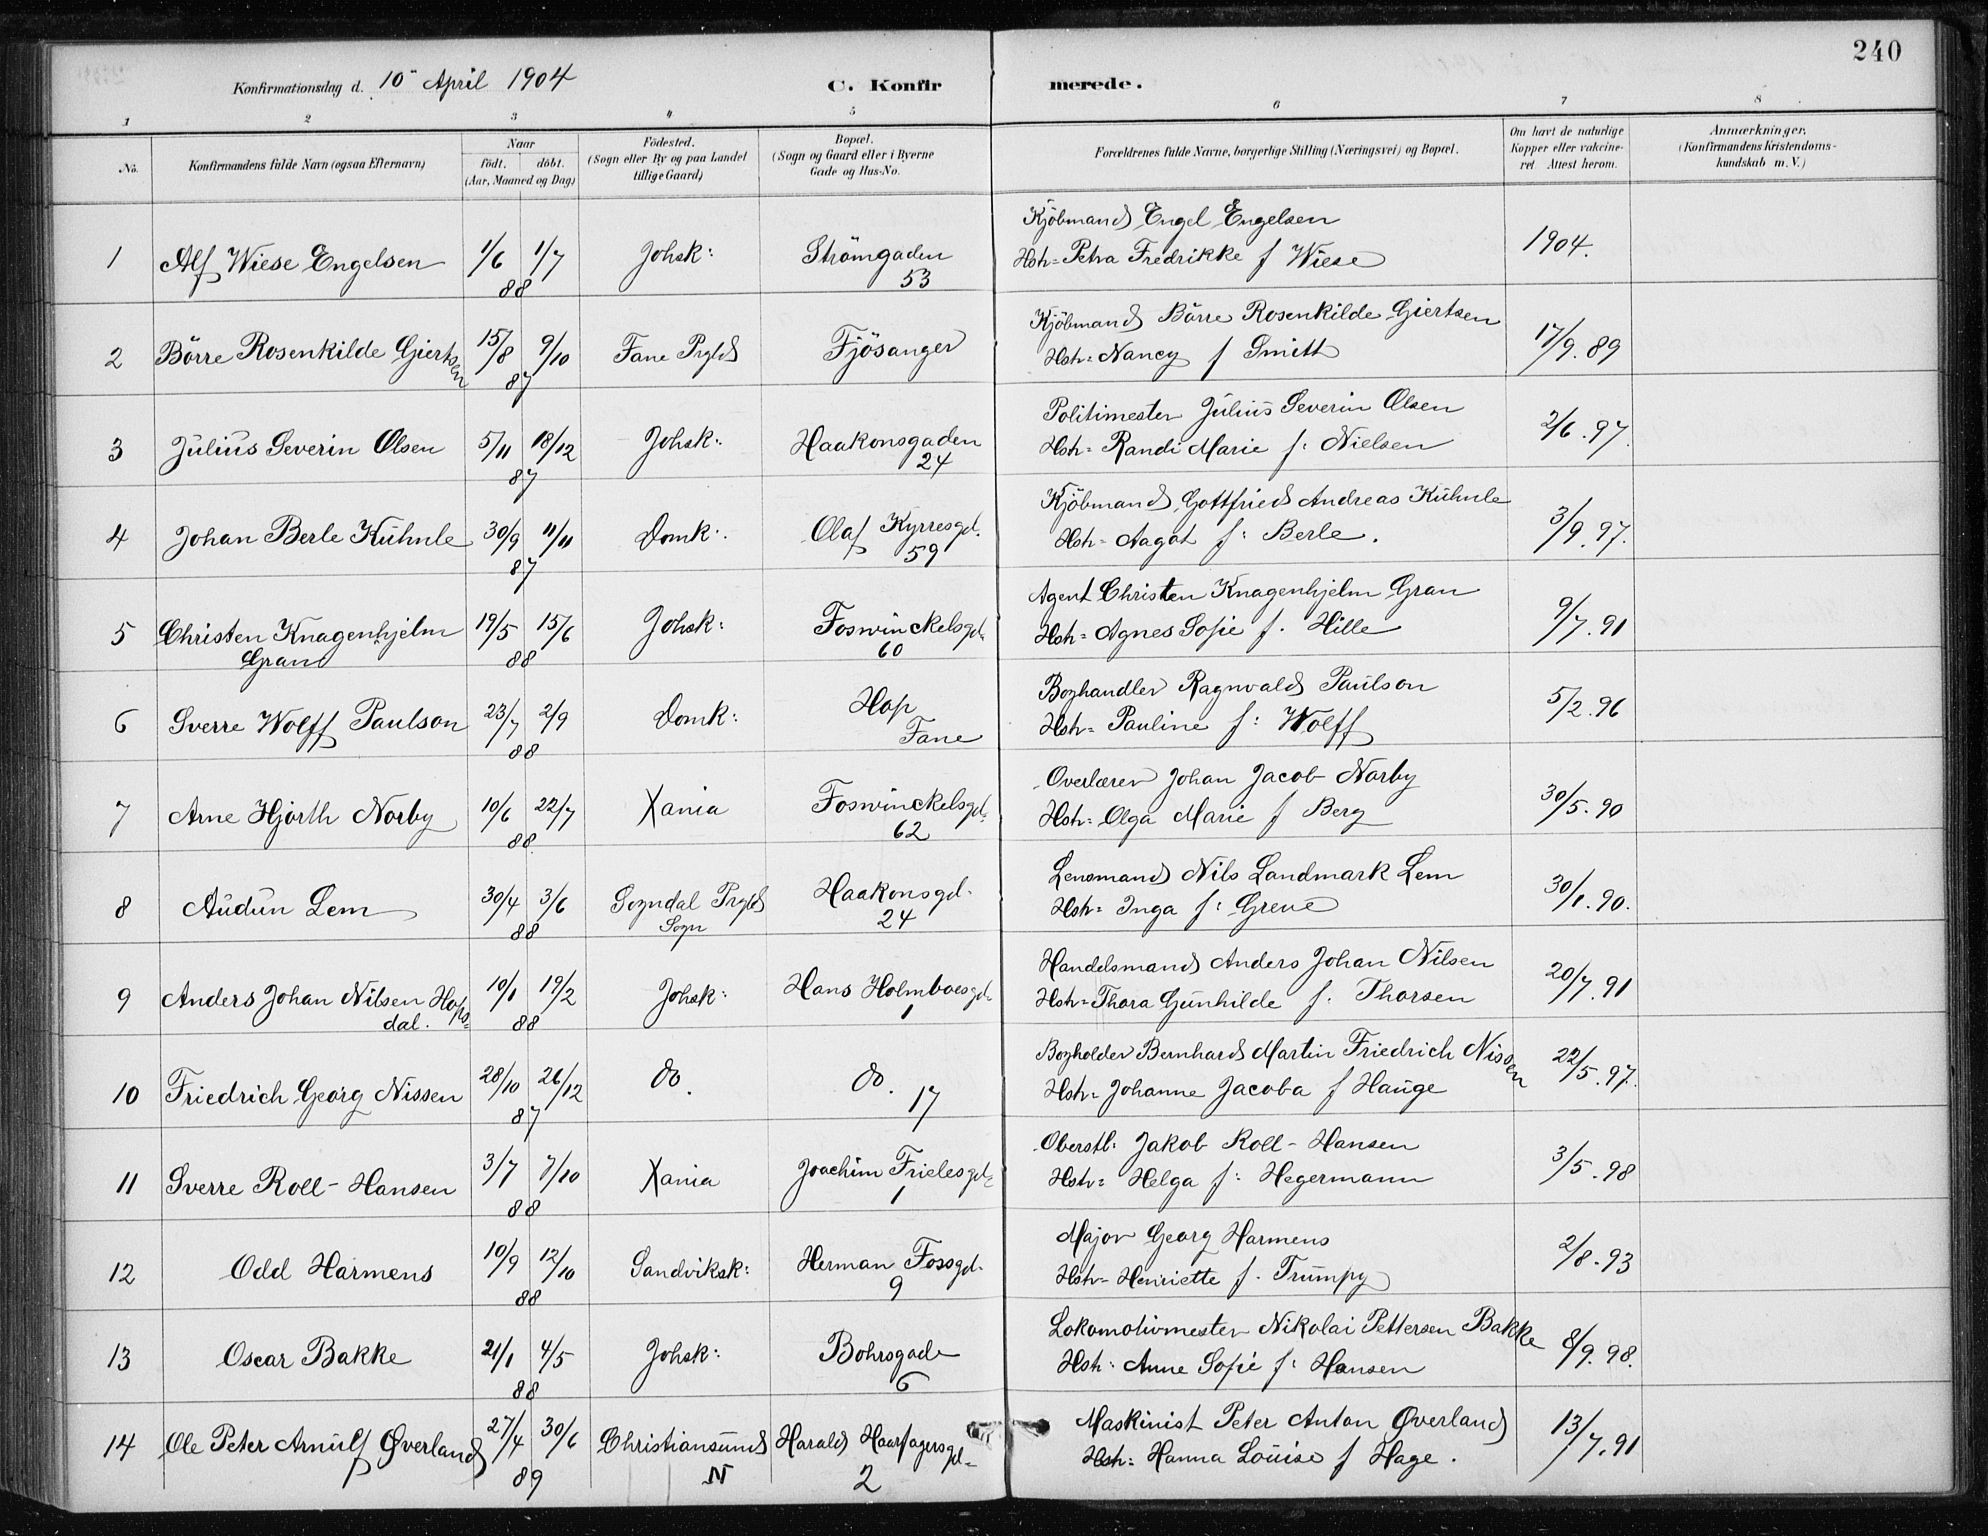 240
Konfirmationsdag d. 10 April 1904
C. Konfirmerede.
1 2 3 4 5 6 7 8
No.
Konfirmandens fulde Navn (ogsaa Efternavn)
Naar
födt. döbt.
(Aar, Maaned og Dag)
Födested.
(Sogn eller By og paa Landet
tillige Gaard)
Bopæl.
(Sogn og Gaard eller i Byerne
Gade og Hus-No.
Forældrenes fulde Navne, borgerlige Stilling (Næringsvei) og Bopæl.
Om havt de naturlige
Kopper eller vakcine-
ret. Attest herom.
Anmærkninger.
(Konfirmandens Kristendoms-
kundskab m. V.)
1 Alf Wiese Engelsen 1/6 1/7 88 Johsk: Strömgaden 53
Kjöbmand Engel Engelsen
Hstr= Petra Fredrikke f Wiese 1904.
2 Börre Rosenkilde Giertsen 15/8 9/10 87 Fane Prgld Fjösanger
Kjöbmand Börre Rosenkilde Giertsen
Hstr= Nancy f Smitt 17/9. 89
3 Julius Severin Olsen 5/11 18/12 87 Johsk: Haakonsgaden 24
Politimester Julius Severin Olsen
Hstr= Randi Marie f: Nielsen 2/6. 97.
4 Johan Berle Kuhnle 30/9 11/11 87 Domk: Olaf Kyrresgd. 59
Kjöbmand Gottfried Andreas Kuhnle
Hstr= Aagot f: Berle. 3/9. 97.
5 Christen Knagenhjelm
Gran 19/5 15/6 88 Johsk: Foswinckelsgd= 60
Agent Christen Knagenhjelm Gran
Hstr= Agnes Sofie f. Hille 9/7. 91
6 Sverre Wolff Paulson 23/7 2/9 88 Domk: Hop
Fane
Boghandler Ragnvald Paulson
Hstr= Pauline f: Wolff 5/2. 96
7 Arne Hjorth Norby 10/6 22/7 88 Xania Foswinckelsgd= 62
Overlærer Johan Jacob Norby
Hstr= Olga Marie f Berg 30/5. 90
8 Audun Lem 30/4 3/6 88 Sogndal Prgld
Sogn Haakonsgd. 24
Lensmand Nils Landmark Lem
Hstr= Inga f: Greve 30/1. 90.
9 Anders Johan Nilsen Hops=
dal. 10/1 19/2 88 Johsk: Hans Holmboesgd= 1
Handelsmand Anders Johan Nilsen
Hstr= Thora Gunhilde f. Thorsen 20/7. 91
10 Friedrich Georg Nissen 28/10 26/12 87 do. do. 17
Bogholder Bernhard Martin Friedrich Nissen
Hstr= Johanne Jacoba f Hauge 22/5. 97.
11 Sverre Roll-Hansen 3/7 7/10 88 Xania Joachim Frielesgd= 1
Oberstl: Jakob Roll-Hansen
Hstr= Helga f: Hegermann 3/5. 98
12 Odd Harmens 10/9 12/10 88 Sandviksk: Herman Fossgd. 9
Major Georg Harmens
Hstr= Henriette f. Trumpy 2/8. 93
13 Oscar Bakke 21/1 4/5 88 Johsk: Bohrsgade 6
Lokomotivmester Nikolai Pettersen Bakke
Hstr: Anne Sofie f: Hansen 8/9. 98.
14 Ole Peter Arnulf Øverland 27/4 30/6 89 Christiansund
N Harald Haarfagersgd= 2
Maskinist Peter Anton Øverland
Hstr: Hanna Louise f Hage. 13/7. 91